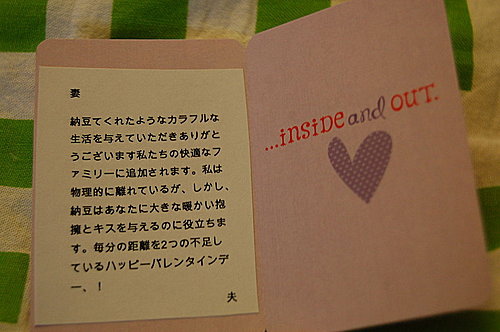 妻
納豆てくれたようなカラフルな
生活を与えていただきありがと
うございます私たちの快適なフ
ァミリーに追加されます。私は
物理的に離れているが、しかし、
納豆はあなたに大きな暖かい抱
擁とキスを与えるのに役立ちま
す。毎分の距離を2つの不足し
ているハッピーバレンタインデ
ー、！
夫
...INSIDE and OUT.